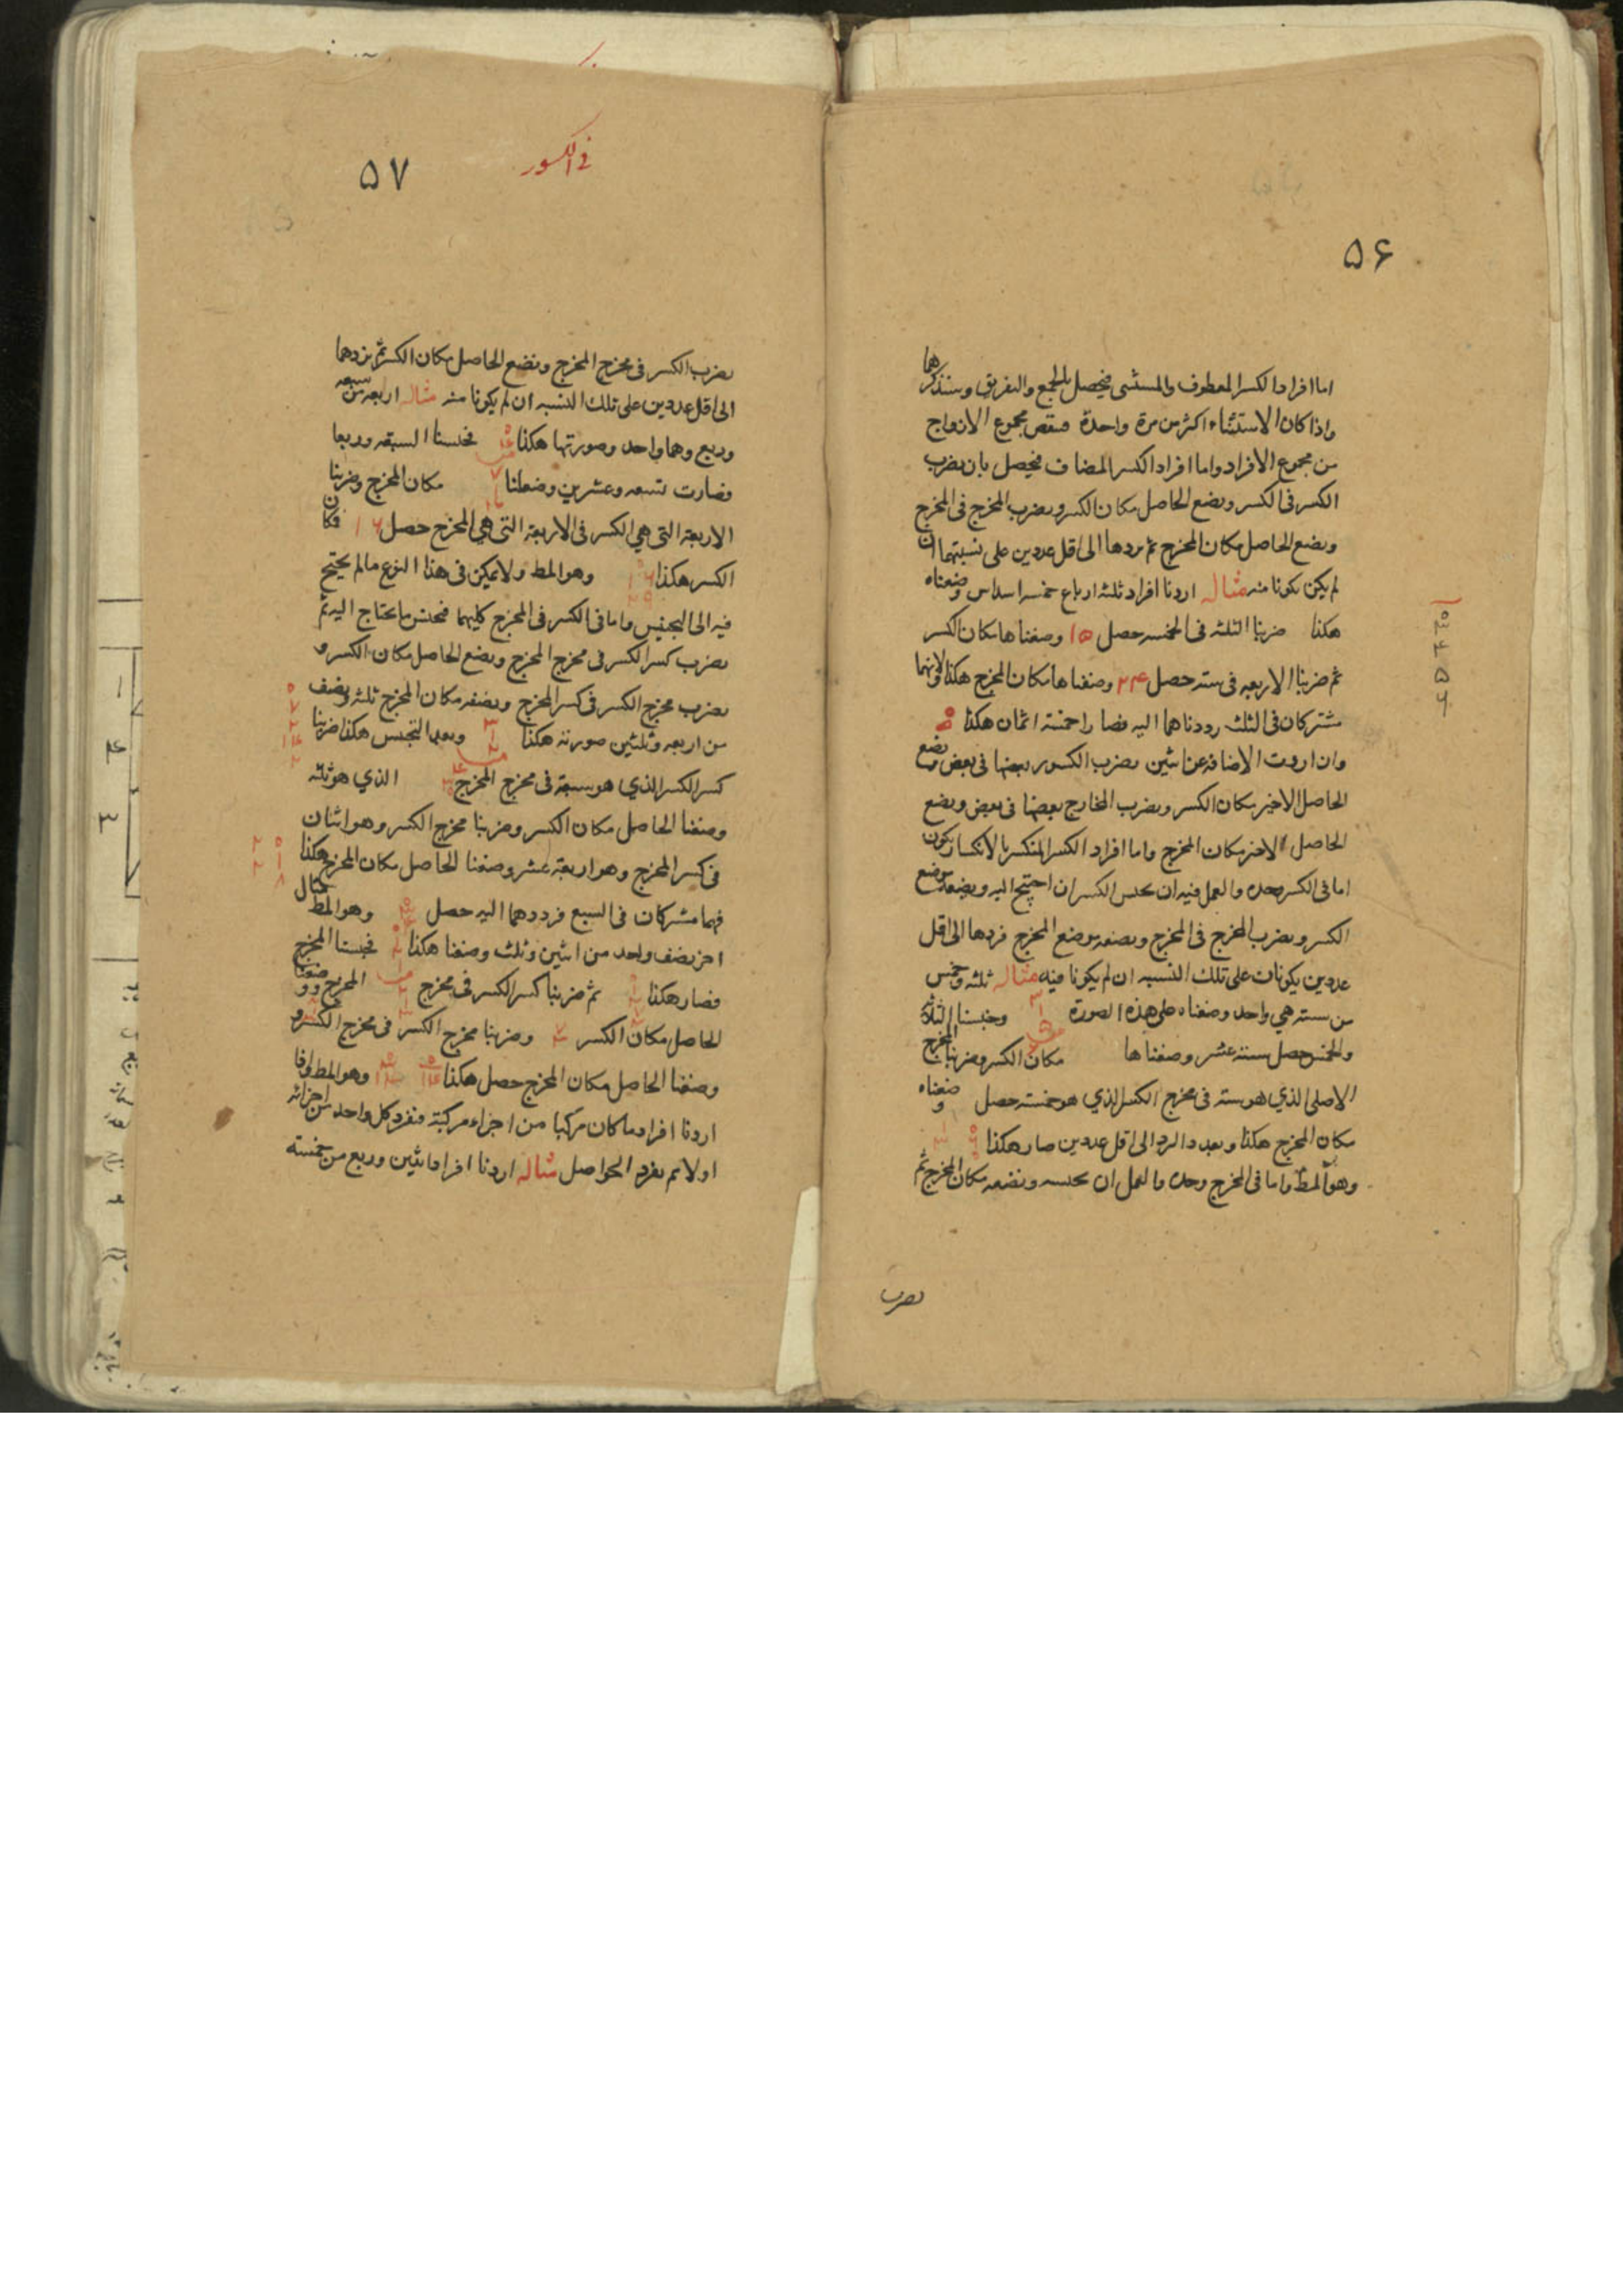 ۵۶
اما افراد الكسر المعطوف والمستثنى فيحصل بالجمع والتفريق وسنذكرهما
واذا كان الاستثناء اكثر من مرة واحدة فنقص مجموع الازواج
من مجموع الافراد واما افراد الكسر المضاف فيحصل بان يضرب
الكسر فى الكسر ويضع الحاصل مكان الكسر ويضرب المخرج فى المخرج
ويضع الحاصل مكان المخرج ثم يردها الى اقل عددين على نسبتهما ان
لم يكن يكونا منه مثاله اردنا افراد ثلثه ارباع خمسه اسداس وضعناه
هكذا ضربنا الثلثه فى الخمسه حصل ۱۵ وضعناها مكان الكسر
ثم ضربنا الاربعه فى سته حصل ۲۴ وضعناها مكان المخرج هكذا ولانهما
مشتركان فى الثلث رددناهما اليه فصارا خمسة اثمان هكذا
وان اردت الاضافه عن اثنين يضرب الكسور بعضها فى بعض ويضع
الحاصل الاخير مكان الكسر ويضرب المخارج بعضها فى بعض ويضع
الحاصل الاخير مكان المخرج واما افراد الكسر المنكسر بالانكسار يكون
اما فى الكسر وحده والعمل فيه ان يجنس الكسر ان احتيج اليه ويضعه موضع
الكسر ويضرب المخرج فى المخرج ويضعه موضع المخرج فردها الى اقل
عددين يكونان على تلك النسبه ان لم يكونا فيه مثاله ثلثه وخمس
من سته هي واحد وضعناه على هذه الصورة وجنسنا الثلاثة
والخمس حصل ستة عشر وضعناها مكان الكسر وضربنا المخرج
الاصلى الذي هو سته فى مخرج الكسر الذي هو خمسته حصل وضعناه
مكان المخرج هكذا وبعد الرد الى اقل عددين صار هكذا
وهو المط واما فى المخرج وحده والعمل ان يجنسه ويضعه مكان المخرج ثم
يضرب
۵۷
فى الكسور
يضرب الكسر فى مخرج المخرج ونضع الحاصل مكان الكسر ثم نردهما
الى اقل عددين على تلك النسبه ان لم يكونا منه مثاله اربعه من سبعه
وربع وهما واحد وصورتها هكذا فجنسنا السبعه وربعا
فصارت تسعه وعشرين وضعلنا مكان المخرج وضربنا
الاربعة التى هي الكسر فى الاربعة التى هي المخرج حصل ۱۶ فكان
الكسر هكذا وهو المط ولا يمكن فى هذا النوع مالم يحتج
فيه الى التجنيس واما فى الكسر فى المخرج كليهما فنجنس ما يحتاج اليه ثم
يضرب كسر الكسر فى مخرج المخرج ويضع الحاصل مكان الكسر و
يضرب مخرج الكسر فى كسر المخرج ويضعه مكان المخرج ثلثه ونصف
من اربعه وثلثين صورته هكذا وبعد التجنيس هكذا ضربنا
كسر الكسر الذي هو سبعة فى مخرج المخرج الذي هو ثلثه
وضعنا الحاصل مكان الكسر وضربنا مخرج الكسر وهو اثنان
فى كسر المخرج وهو اربعة عشر وضعنا الحاصل مكان المخرج هكذا
فهما مشتركان فى السبع فرددهما اليه حصل وهو المط مثال
اخر نصف واحد من اثنين وثلث وضعنا هكذا فجنسنا المخرج
فصار هكذا ثم ضربنا كسر الكسر فى مخرج المخرج ووضعنا
الحاصل مكان الكسر وضربنا مخرج الكسر فى مخرج الكسر و
وضعنا الحاصل مكان المخرج حصل هكذا وهو المط واذا
اردنا افراد ما كان مركبا من اجزاء مركبة فنفرد كل واحد من اجزائه
اولا ثم نفرد الحواصل مثاله اردنا افراد اثنين وربع من خمسته